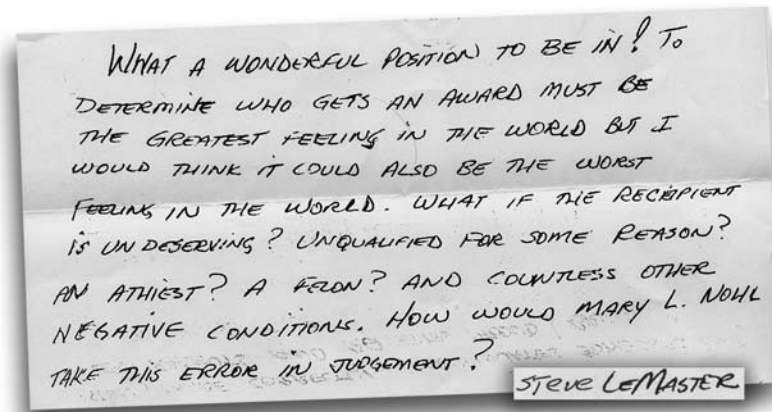 WHAT A WONDERFUL POSITION TO BE IN! TO
DETERMINE WHO GETS AN AWARD MUST BE
THE GREATEST FEELING IN THE WORLD BUT I
WOULD THINK IT COULD ALSO BE THE WORST
FEELING IN THE WORLD. WHAT IF THE RECIPIENT
IS UN DESERVING? UNQUALIFIED FOR SOME REASON?
AN ATHIEST? A FELON? AND COUNTLESS OTHER
NEGATIVE CONDITIONS. HOW WOULD MARY L. NOHL
TAKE THIS ERROR IN JUDGEMENT?
STEVE LEMASTER